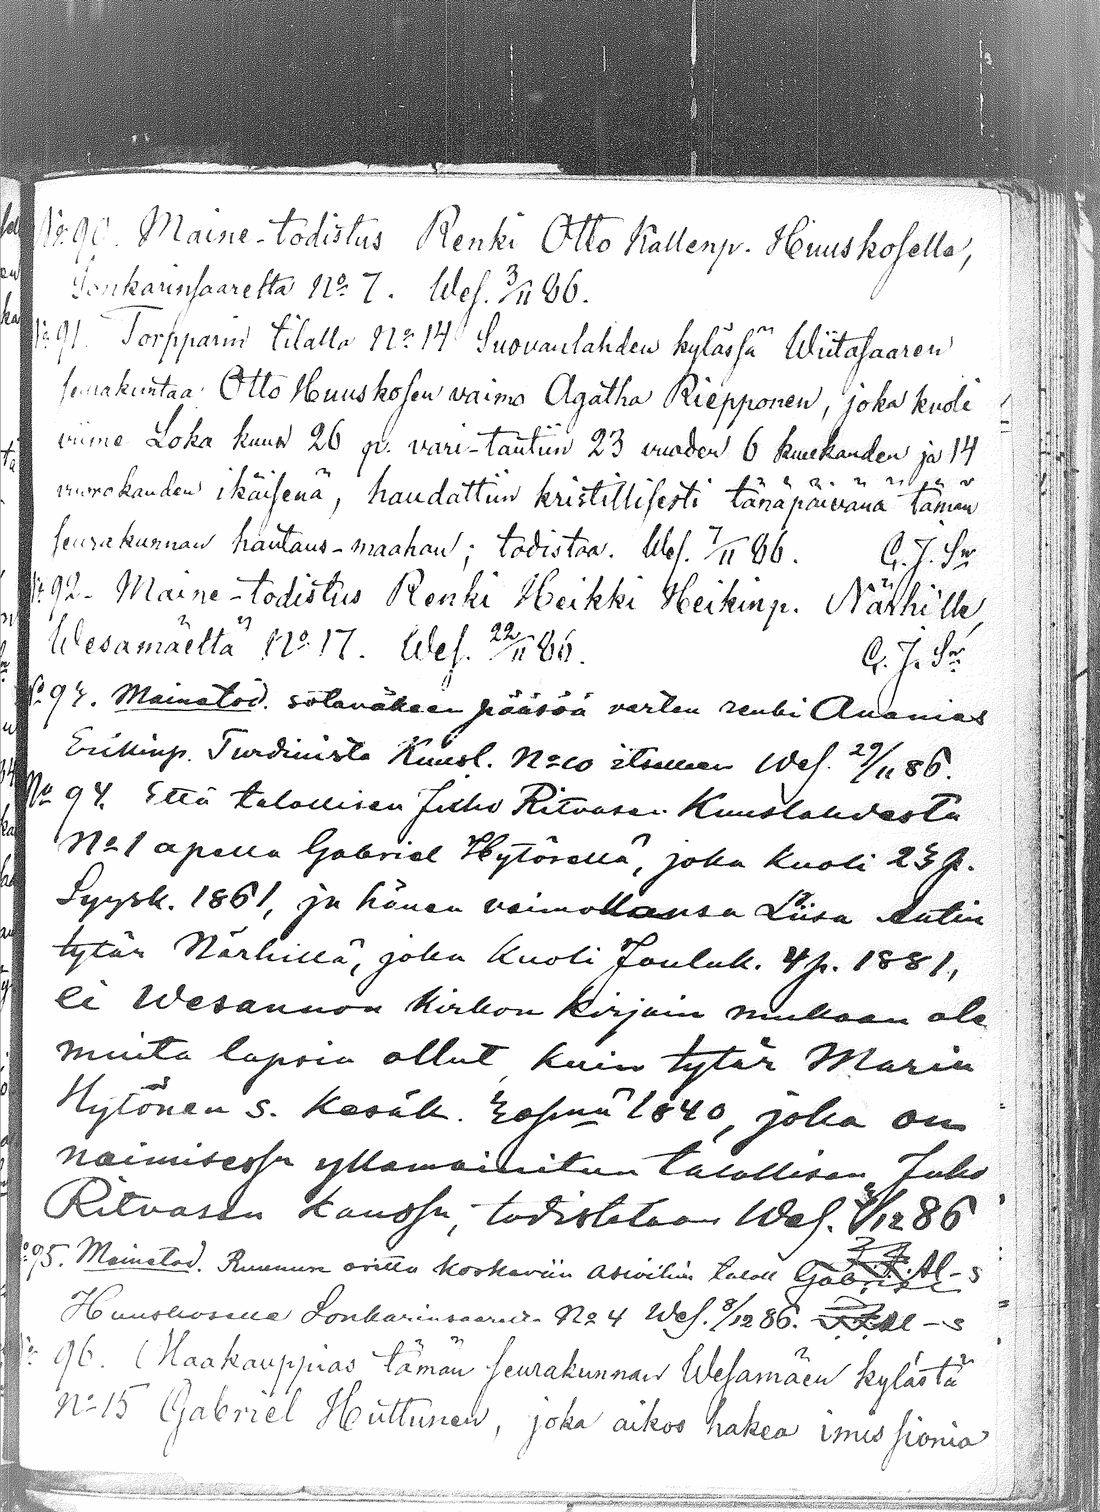 No 90. Maine-todistus Renki Otto Kallenp. Huuskoselle,
Sonkarinsaarelta No 7. Wes. 3/11 86.
No 91. Torpparin tilalla No 14 Suovanlahden kylässä Wiitasaaren
seurakuntaa Otto Huuskosen vaimo Agatha Riepponen, joka kuoli
viime Loka kuun 26 p. vari-tautiin 23 vuoden 6 kuukauden ja 14
vuorokauden ikäisenä, haudattiin kristillisesti tänäpäivänä tämän
seurakunnan hautaus-maahan; todistaa. Wes. 7/11 86. G. J. Sn
No 92. Maine-todistus Renki Heikki Heikinp. Närhille,
Wesamäeltä No 17. Wes. 22/11 86. G. J. Sn
No 93. Mainetod. sotaväkeen pääsöä varten renki Ananias
Erikinp. Turdinista Kuusl. No 10 itselleen Wes. 29/11 86.
No 94. Että talollisen Juho Ritvasen Kuuslahdesta
No 1 apella Gabriel Hytösellä, joka kuoli 23 p.
Syysk. 1861, ja hänen vaimollansa Liisa Antin
tytär Närhillä, joka kuoli Jouluk. 4 p. 1881,
ei Wesannon kirkon kirjain mukaan ole
muita lapsia ollut, kuin tytär Maria
Hytönen s. Kesäk. 1840, joka on
naimisessa yllämainitun talollisen Juho
Ritvasen kanssa, todistetaan Wes. /12 86
No 95. Mainetod. Ruunun ostoa koskeviin asioihin taloll Gabriel Al-s
Huuskoselle Sonkarinsaarelta No 4 Wes. 8/12 86. Al-s
No 96. Maakauppias tämän seurakunnan Wesamäen kylästä
No 15 Gabriel Huttunen, joka aikoo hakea imissionia